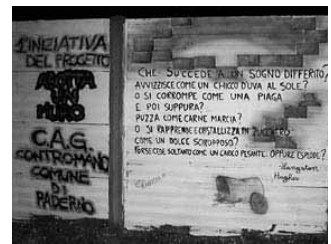 1ª INIZIATIVA
DEL PROGETTO
ADOTTA
UN
MURO
C.A.G.
CONTROMANO
COMUNE
DI
PADERNO
CHE SUCCEDE A UN SOGNO DIFFERITO?
AVVIZZISCE COME UN CHICCO D'UVA AL SOLE?
O SI CORROMPE COME UNA PIAGA
E POI SUPPURA?
PUZZA COME CARNE MARCIA?
O SI RAPPRENDE E CRISTALLIZZA IN ZUCCHERO
COME UN DOLCE SCIROPPOSO?
FORSE CEDE SOLTANTO COME UN CARICO PESANTE. OPPURE ESPLODE?
Langston
Hughes